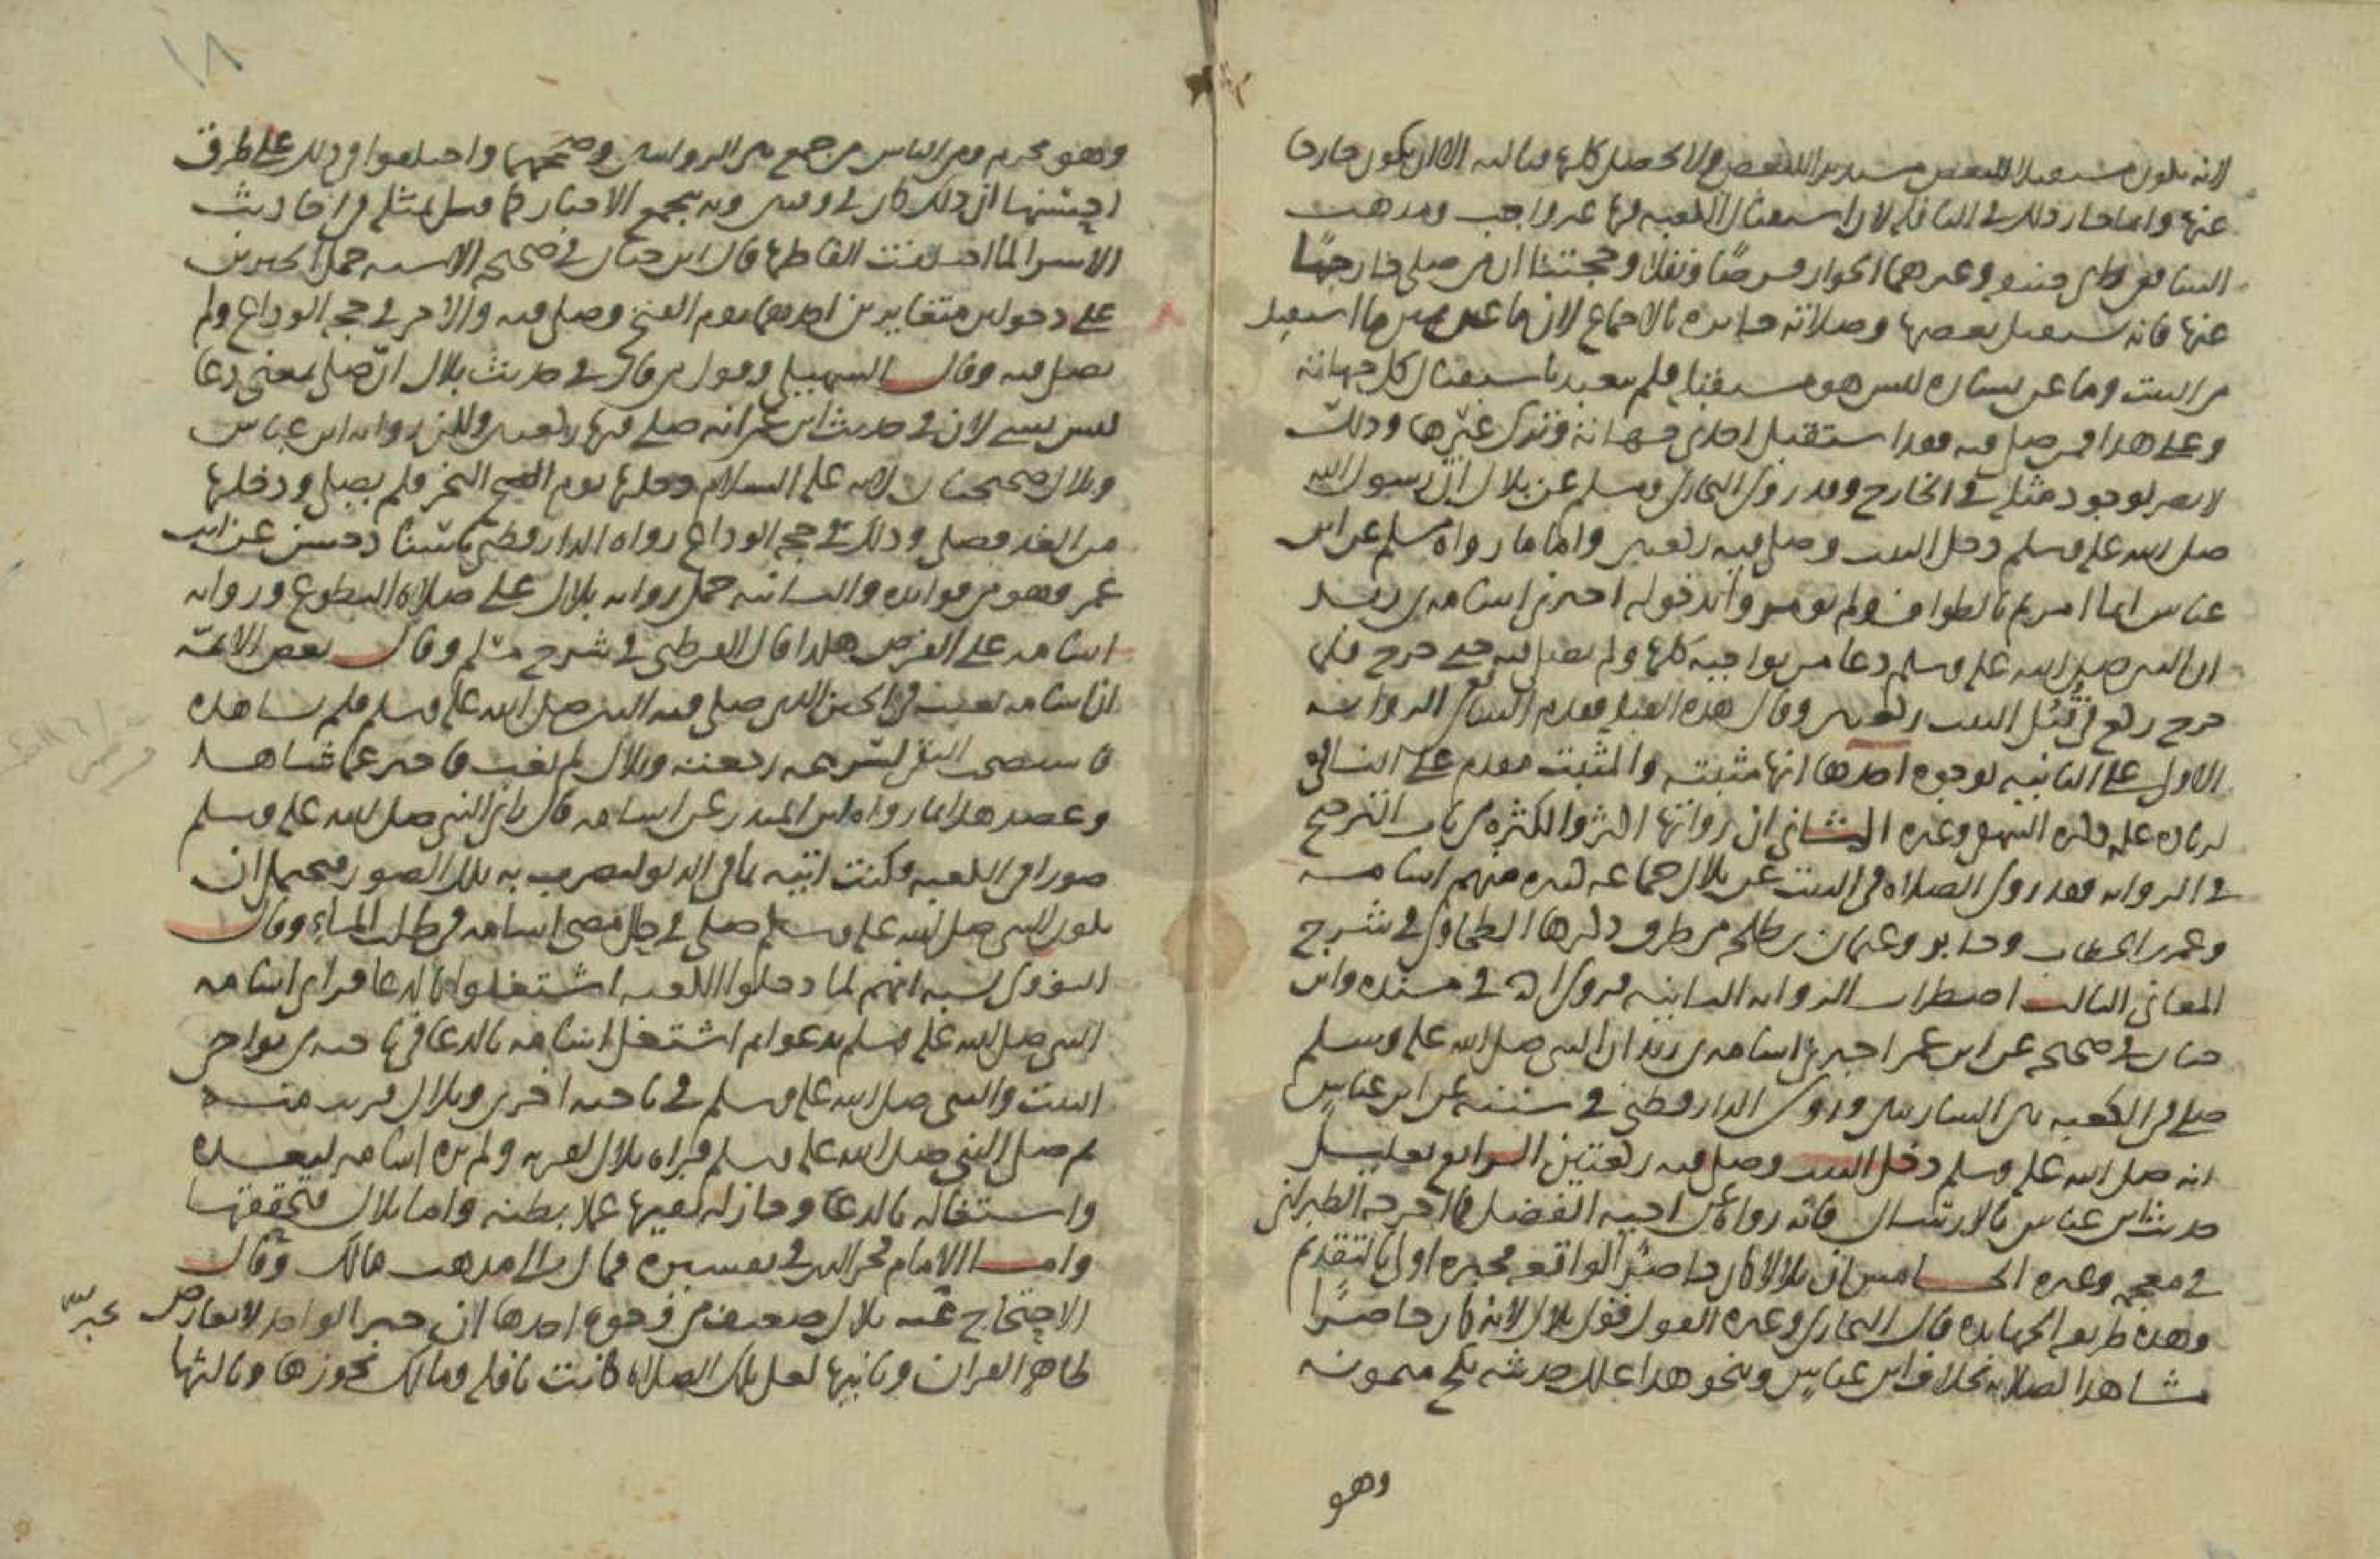 لانه يكون مستقبلا للبعض مستدبرا للبعض ولا يحصل كلها قبالته الا ان يكون خارجا
عنها وانما جاز ذلك في النافلة لان استقبال الكعبة فيها غير واجب ومذهب
الشافعي وابي حنيفة وغيرهما الجواز فرضا ونفلا وحجتنا ان من صلى خارجها
عنها فانه يستقبل بعضها وصلاته جايزه بالاجماع لان ما عن يمين ما استقبل
من البيت وما عن يساره ليس هو مستقبله فلم يتعبد باستقبال كل جهاته
وعلى هذا فمن صلى فيه فقد استقبل احدى جهاته وترك غيرها وذلك
لا يضر لوجود مثله في الخارج وقد روى البخاري ومسلم عن بلال ان رسول الله
صلى الله عليه وسلم دخل البيت وصلى فيه ركعتين واما ما رواه مسلم عن ابن
عباس انما امرتم بالطواف ولم تومروا بدخوله اخبرني اسامه بن زيد
ان النبي صلى الله عليه وسلم دعا من نواحيه كلها ولم يصل فيه حتى خرج فلما
خرج ركع في قبل البيت ركعتين وقال هذه القبلة فقدم الناس الرواية
الاولى على الثانية لوجوه احدها انها مثبتة والمثبت مقدم على النافي
لزياده علمه ذكره السهيلي وغيره الثاني ان رواتها اكثر والكثره من باب الترجيح
في الرواية فقد روى الصلاه في البيت عن بلال جماعه كثيره منهم اسامه
وعمر بن الخطاب وجابر وعثمان بن طلحه من طرق ذكرها الطحاوي في شرح
المعاني الثالث اضطراب الرواية الثانية فروى احمد في مسنده وابن
حبان في صحيحه عن ابن عمر اخبرني اسامه بن زيد ان النبي صلى الله عليه وسلم
صلى في الكعبه بين الساريتين وروى الدارقطني في سننه عن ابن عباس
انه صلى الله عليه وسلم دخل البيت وصلى فيه ركعتين الرابع تعليل
حديث ابن عباس بالارسال فانه رواه عن اخيه الفضل كما اخرجه الطبراني
في معجمه وغيره الخامس ان بلالا كان حاضر الواقعه فخبره اولى بالتقديم
وهذه طريقه الجهابذه قال البخاري وغيره القول قول بلال لانه كان حاضرا
مشاهدا لصلاته بخلاف ابن عباس ونحو هذا علل حديثه نكح ميمونه
وهو
١٨
وهو محرم ومن الناس من جمع بين الروايتين وصححهما واختلفوا في ذلك على طرق
احسنها ان ذلك كان في وقتين وبه يجمع الاخبار كما قيل بمثله في احاديث
الاسرا لما اختلفت الفاظها قال ابن حبان في صحيحه الاشبه حمل الخبرين
على دخولين متغايرين احدهما يوم الفتح وصلى فيه والاخر في حجه الوداع ولم
يصل فيه وقال السهيلي وقول من قال في حديث بلال انه صلى بمعنى دعا
ليس بشي لان في حديث ابن عمر انه صلى فيها ركعتين ولكن رواية ابن عباس
وبلال صحيحتان لانه عليه السلام دخلها يوم النحر فلم يصل ودخلها
من الغد فصلى وذلك في حجه الوداع رواه الدارقطني باسناد حسن عن ابن
عمر وهو من فوايده والثانيه حمل رواية بلال على صلاه التطوع ورواية
اسامه على الفرض هكذا قال القرطبي في شرح مسلم وقال بعض الائمة
ان اسامه تغيب في الحين الذي صلى فيه النبي صلى الله عليه وسلم فلم يشاهده
فاستصحب النفي لسرعه رجعته وبلال لم يغب فاخبر عما شاهد
وعضد هذا بما رواه ابن المنذر عن اسامه قال راى النبي صلى الله عليه وسلم
صورا في الكعبه فكنت اتيه بما في الدلو ليضرب به تلك الصور فيحتمل ان
يكون النبي صلى الله عليه وسلم صلى في حال مضي اسامه في طلب الماء وقال
النووي سببه انهم لما دخلوا الكعبه اشتغلوا بالدعا فراى اسامه
النبي صلى الله عليه وسلم يدعو ثم اشتغل اسامه بالدعا في ناحيه من نواحي
البيت والنبي صلى الله عليه وسلم في ناحيه اخرى وبلال قريب منه
ثم صلى النبي صلى الله عليه وسلم فراه بلال لقربه ولم يره اسامه لبعده
واشتغاله بالدعا وجاز له نفيها عملا بظنه واما بلال فتحققها
واما الامام فخر الدين في تفسيره فمال الى مذهب مالك وقال
الاحتجاج بخبر بلال ضعيف من وجوه احدها ان خبر الواحد لا يعارض
ظاهر القران وثانيها لعل تلك الصلاه كانت نافله ومالك يجوزها وثالثها